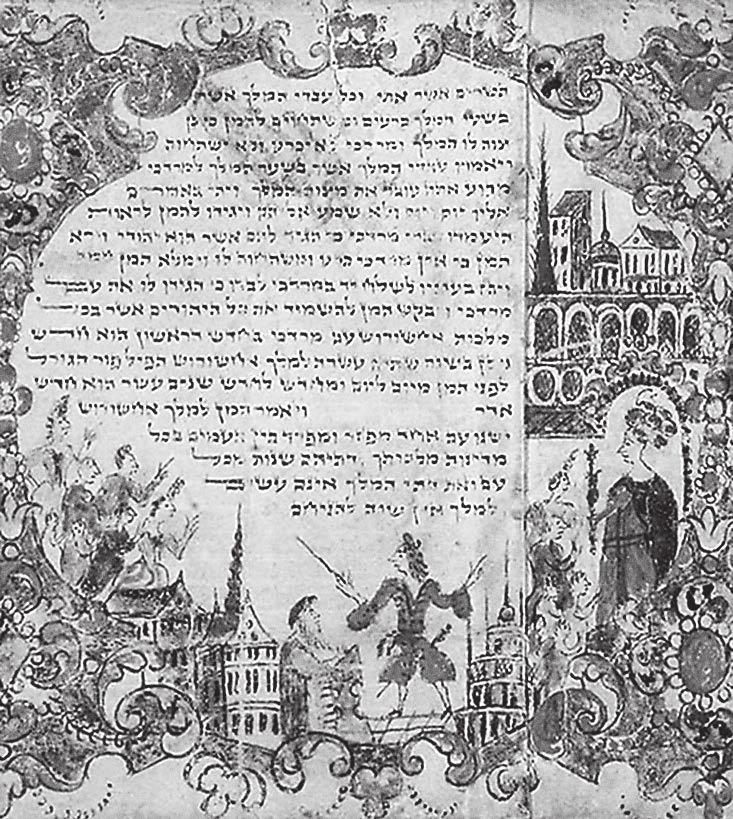 השרים אשר אתו וכל עבדי המלך אשר
בשער המלך כרעים ומשתחוים להמן כי כן
צוה לו המלך ומרדכי לא יכרע ולא ישתחוה
ויאמרו עבדי המלך אשר בשער המלך למרדכי
מדוע אתה עובר את מצות המלך ויהי באמרם
אליו יום ויום ולא שמע אליהם ויגידו להמן לראות
היעמדו דברי מרדכי כי הגיד להם אשר הוא יהודי וירא
המן כי אין מרדכי כרע ומשתחוה לו וימלא המן חמה
ויבז בעיניו לשלח יד במרדכי לבדו כי הגידו לו את עם
מרדכי ויבקש המן להשמיד את כל היהודים אשר בכל
מלכות אחשורוש עם מרדכי בחדש הראשון הוא חדש
ניסן בשנת שתים עשרה למלך אחשורוש הפיל פור הגורל
לפני המן מיום ליום ומחדש לחדש שנים עשר הוא חדש
אדר ויאמר המן למלך אחשורוש
ישנו עם אחד מפזר ומפרד בין העמים בכל
מדינות מלכותך ודתיהם שנות מכל
עם ואת דתי המלך אינם עשים
ולמלך אין שוה להניחם